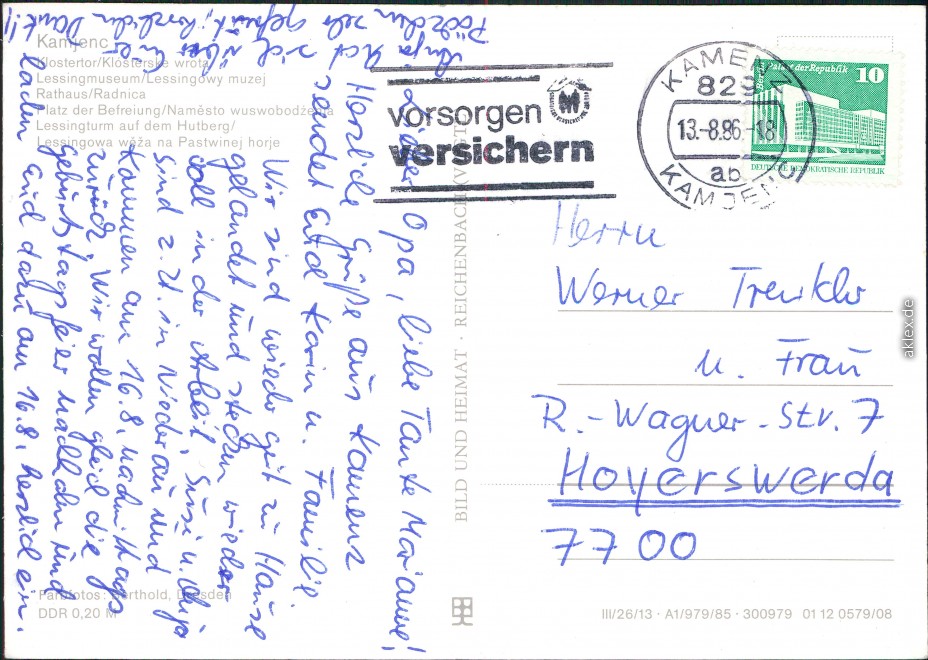 Kamjenc
Klostertor/Klósterske wrota
Lessingmuseum/Lessingowy muzej
Rathaus/Radnica
Platz der Befreiung/Naměsto wuswobodźenja
Lessingturm auf dem Hutberg/
Lessingowa wěža na Pastwinej horje
Lieber Opa, liebe Tante Marianne!
Herzliche Grüße aus Kamenz
sendet Euch Karin u. Familie
Wir sind wieder gut zu Hause
gelandet und stecken wieder
voll in der Arbeit, Susi u. Anja
sind z. Zt. in Niederau und
kommen am 16.8. nachmittags
zurück. Wir wollen gleich die
Geburtstagsfeier nachholen und
laden Euch dazu am 16.8. herzlich ein.
Anja hat sich über Euer
Päckchen sehr gefreut, herzlichen Dank!!
Farbfotos: Barthold, Dresden
DDR 0,20 M
BILD UND HEIMAT · REICHENBACH (VOGTL)
vorsorgen
versichern
KAMENZ
829
13.-8.86.-18
ab
KAMJENC
Palast der Republik
10
DEUTSCHE DEMOKRATISCHE REPUBLIK
Herrn
Werner Trenkler
u. Frau
R.-Wagner-Str. 7
Hoyerswerda
7700
III/26/13 · A1/979/85 · 300979 01 12 0579/08
aklex.de